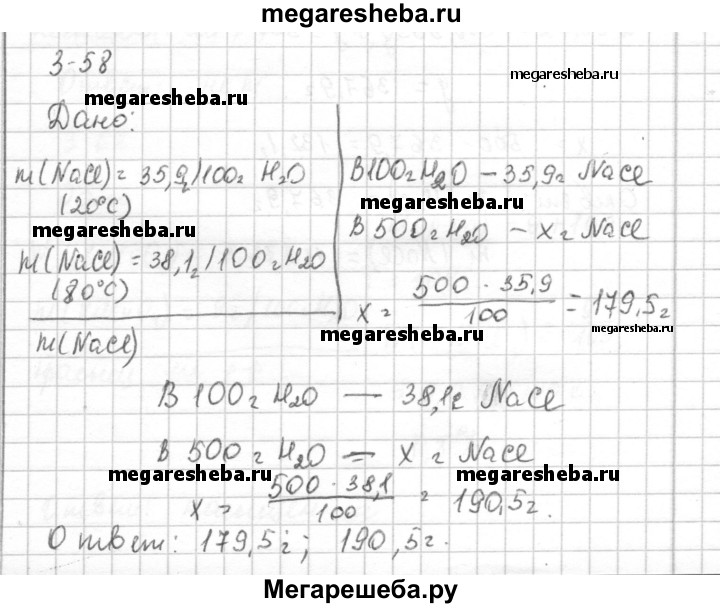 megaresheba.ru
3-58
megaresheba.ru
megaresheba.ru
Дано:
m(NaCl) = 35,9г/100г H2O
(20°С)
В 100г H2O — 35,9г NaCl
megaresheba.ru
megaresheba.ru
В 500г H2O — x г NaCl
m(NaCl) = 38,1г/100г H2O
(80°С)
x = 500 · 35,9 / 100 = 179,5г
megaresheba.ru
megaresheba.ru
m(NaCl)
В 100г H2O — 38,1г NaCl
В 500г H2O — x г NaCl
megaresheba.ru
megaresheba.ru
x = 500 · 38,1 / 100 = 190,5г.
Ответ: 179,5г; 190,5г.
Мегарешеба.ру